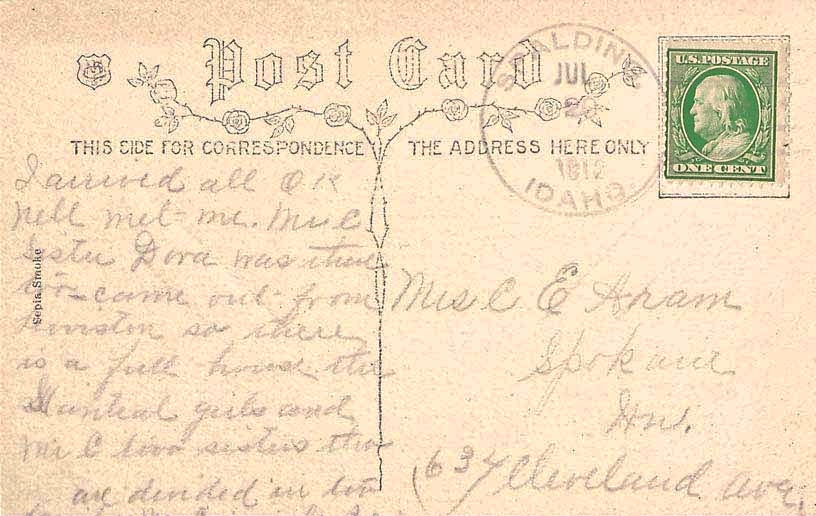 Post Card
THIS SIDE FOR CORRESPONDENCE
THE ADDRESS HERE ONLY
SPALDING
JUL
2
1912
IDAHO.
U.S. POSTAGE
ONE CENT
Sepia Smoke
I arrived all OK
Nell met me. Mr C
Sister Dora was there
too came out from
so there
is a full house the
girls and
Mr C two sisters they
are divided in two
Mrs C E Aram
Spokane
Wn.
637 Cleveland Ave,